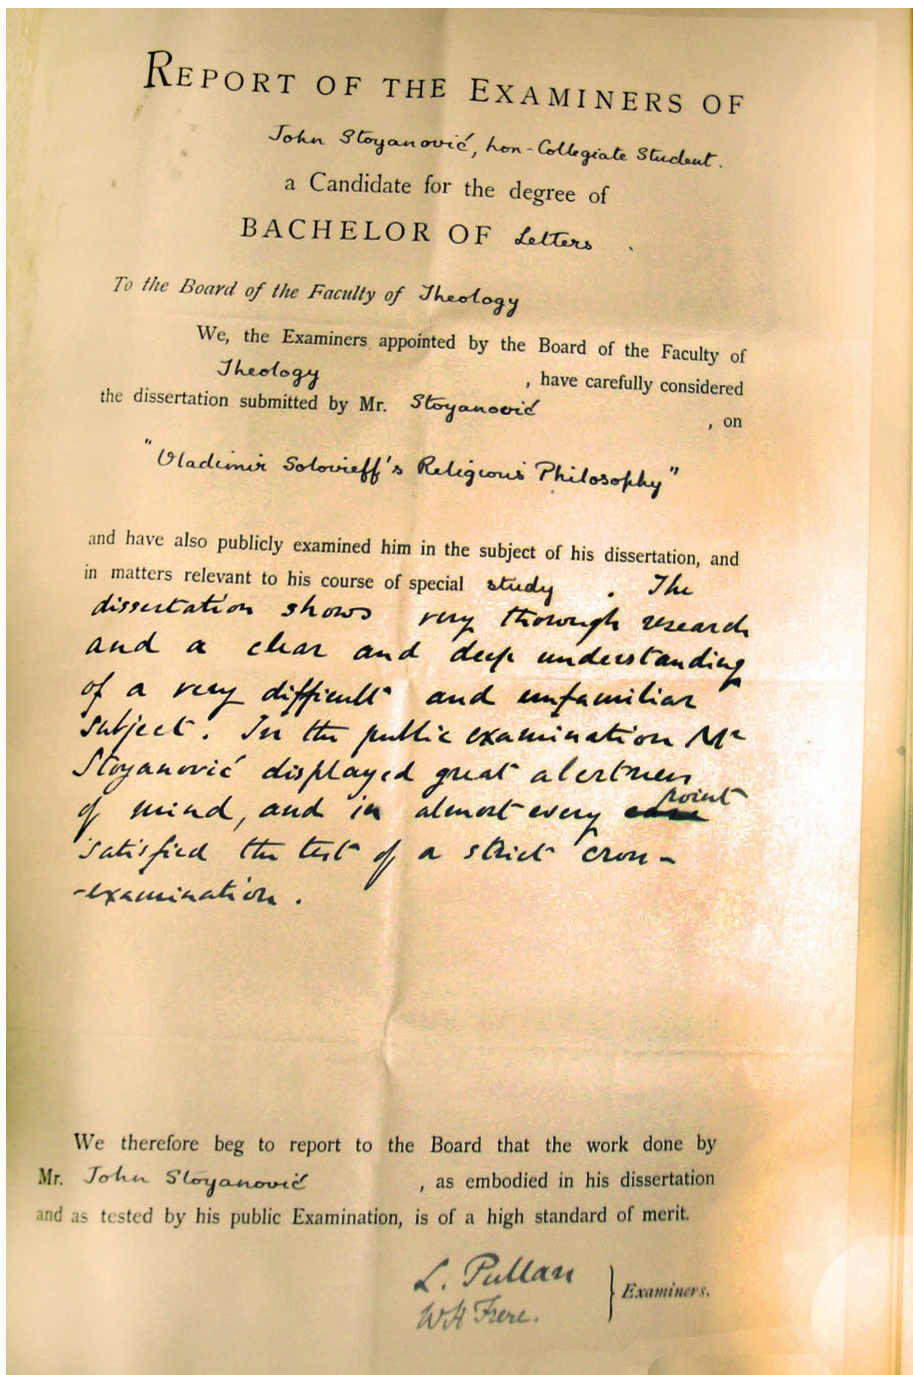 REPORT OF THE EXAMINERS OF
John Stoyanović, Non-Collegiate Student.
a Candidate for the degree of
BACHELOR OF Letters .
To the Board of the Faculty of Theology
We, the Examiners appointed by the Board of the Faculty of
Theology , have carefully considered
the dissertation submitted by Mr. Stoyanović , on
"Vladimir Solovieff's Religious Philosophy"
and have also publicly examined him in the subject of his dissertation, and
in matters relevant to his course of special study . The
dissertation shows very thorough research
and a clear and deep understanding
of a very difficult and unfamiliar
subject. In the public examination Mr
Stoyanović displayed great alertness
of mind, and in almost every point
satisfied the test of a strict cross-
-examination.
We therefore beg to report to the Board that the work done by
Mr. John Stoyanović , as embodied in his dissertation
and as tested by his public Examination, is of a high standard of merit.
L. Pullan
W H Frere. } Examiners.